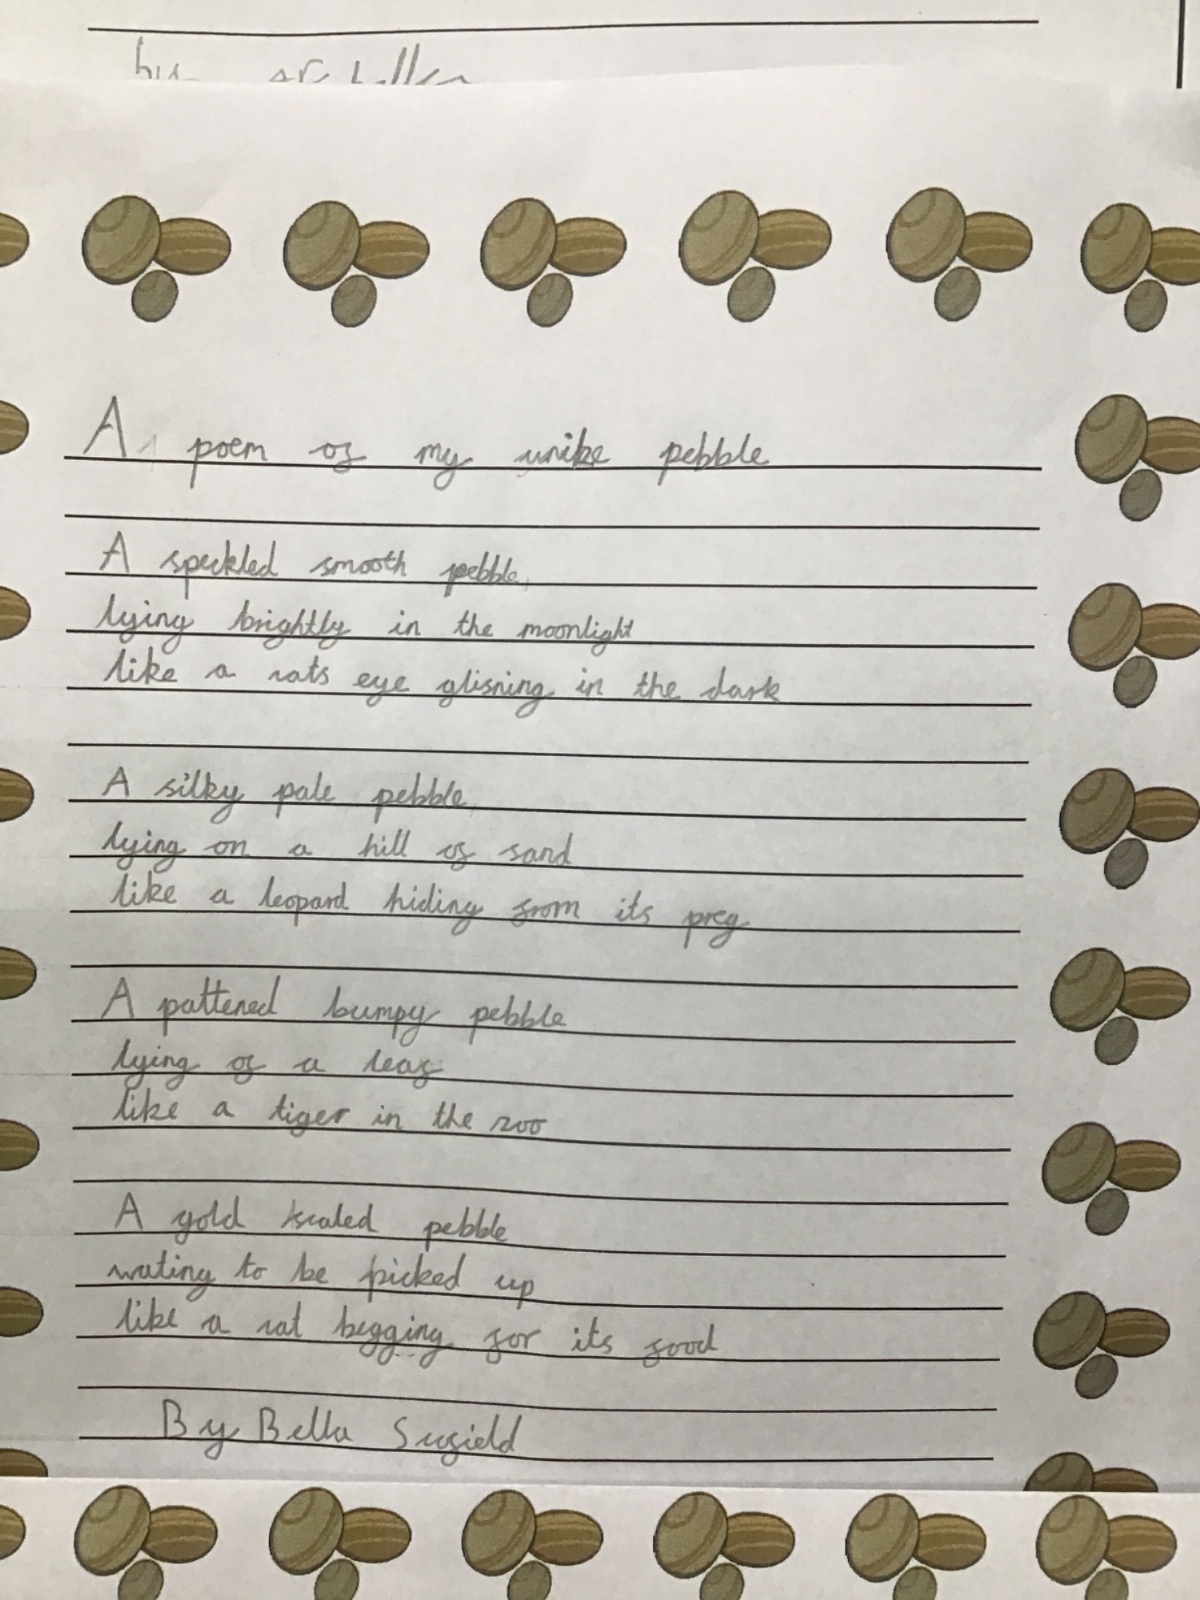 A poem of my unike pebble
A speckled smooth pebble,
lying brightly in the moonlight
like a rats eye glisning in the dark
A silky pale pebble,
lying on a hill of sand
like a leopard hiding from its prey
A pattened bumpy pebble
lying of a leaf
like a tiger in the zoo
A gold scaled pebble
wating to be picked up
like a rat begging for its food
By Bella